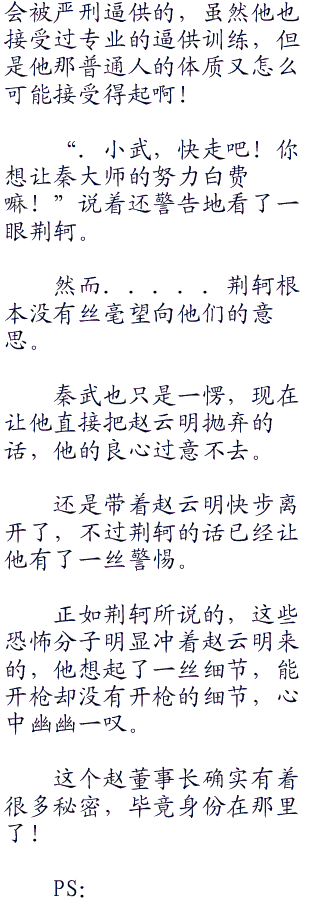 会被严刑逼供的，虽然他也
接受过专业的逼供训练，但
是他那普通人的体质又怎么
可能接受得起啊！
“．小武，快走吧！你
想让秦大师的努力白费
嘛！”说着还警告地看了一
眼荆轲。
然而．．．．．荆轲根
本没有丝毫望向他们的意
思。
秦武也只是一愣，现在
让他直接把赵云明抛弃的
话，他的良心过意不去。
还是带着赵云明快步离
开了，不过荆轲的话已经让
他有了一丝警惕。
正如荆轲所说的，这些
恐怖分子明显冲着赵云明来
的，他想起了一丝细节，能
开枪却没有开枪的细节，心
中幽幽一叹。
这个赵董事长确实有着
很多秘密，毕竟身份在那里
了！
PS: